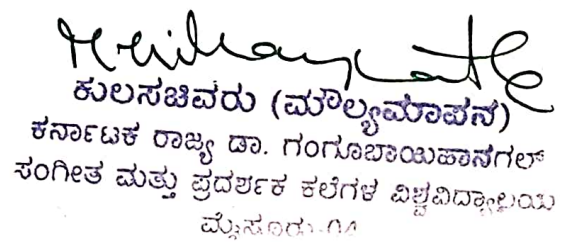 ಕುಲಸಚಿವರು (ಮೌಲ್ಯಮಾಪನ)
ಕರ್ನಾಟಕ ರಾಜ್ಯ ಡಾ. ಗಂಗೂಬಾಯಿಹಾನಗಲ್
ಸಂಗೀತ ಮತ್ತು ಪ್ರದರ್ಶಕ ಕಲೆಗಳ ವಿಶ್ವವಿದ್ಯಾಲಯ
ಮೈಸೂರು